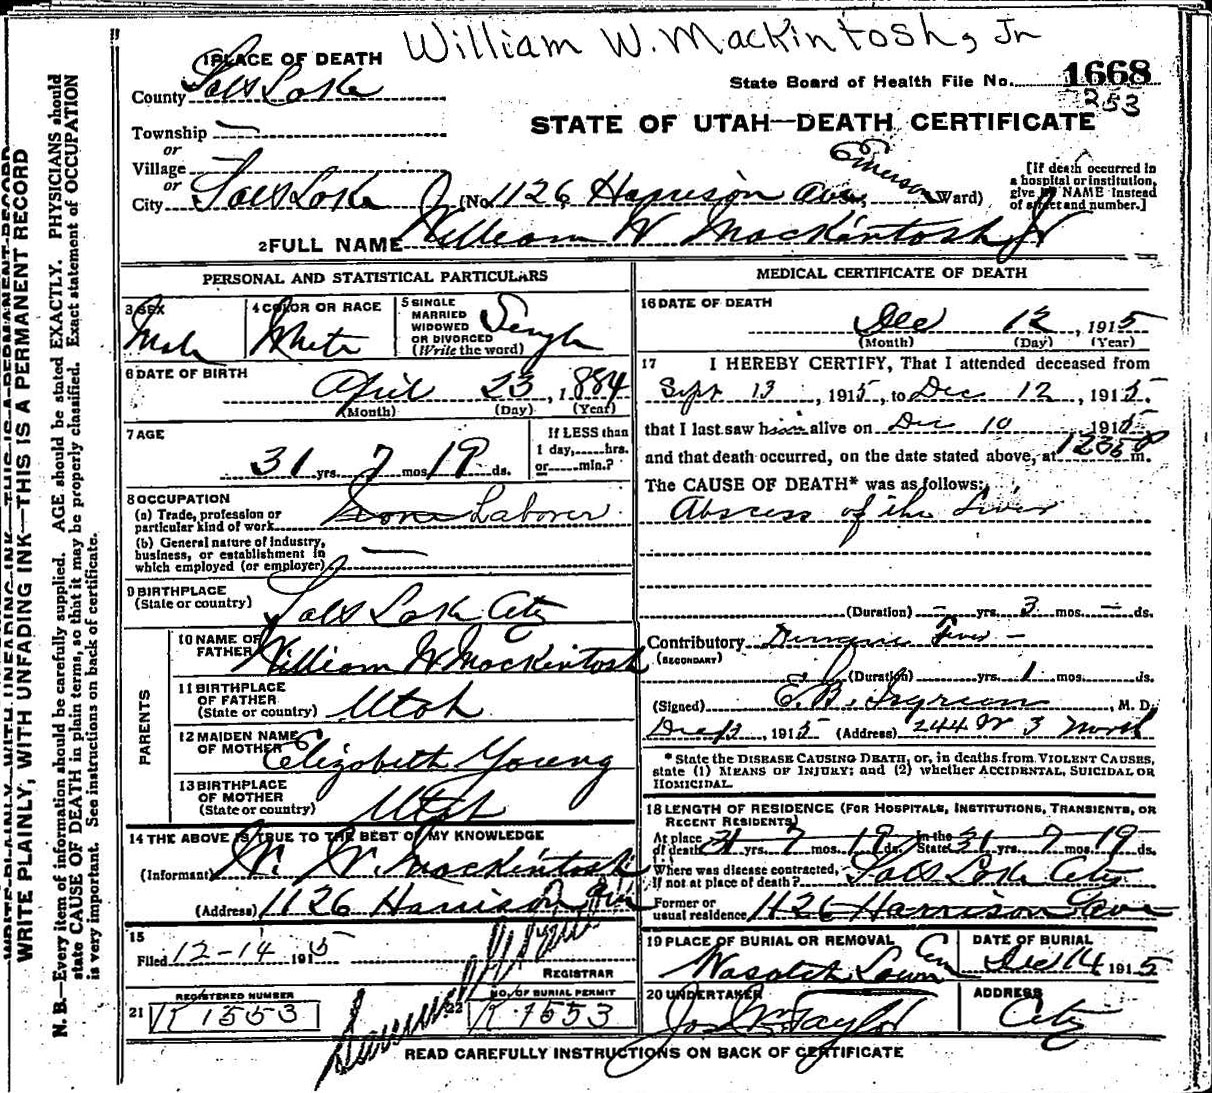 William W. Mackintosh, Jr
1 PLACE OF DEATH
County Salt Lake
State Board of Health File No. 1668
253
Township —
or
Village —
or
STATE OF UTAH—DEATH CERTIFICATE
City Salt Lake (No. 1126 Harrison Ave, Emerson Ward)
[If death occurred in
a hospital or institution,
give its NAME instead
of street and number.]
2 FULL NAME William W Mackintosh Jr
PERSONAL AND STATISTICAL PARTICULARS
3 SEX
Male
4 COLOR OR RACE
White
5 SINGLE
MARRIED
WIDOWED
OR DIVORCED
(Write the word)
Single
6 DATE OF BIRTH
April 23, 1884
(Month) (Day) (Year)
7 AGE
31 yrs. 7 mos. 19 ds.
If LESS than
1 day,.....hrs.
or.....min.?
8 OCCUPATION
(a) Trade, profession or
particular kind of work Laborer
(b) General nature of industry,
business, or establishment in
which employed (or employer) —
9 BIRTHPLACE
(State or country) Salt Lake City
PARENTS
10 NAME OF
FATHER William W Mackintosh
11 BIRTHPLACE
OF FATHER
(State or country) Utah
12 MAIDEN NAME
OF MOTHER Elizabeth Young
13 BIRTHPLACE
OF MOTHER
(State or country) Utah
14 THE ABOVE IS TRUE TO THE BEST OF MY KNOWLEDGE
(Informant) W. W. Mackintosh
(Address) 1126 Harrison Ave
15
Filed 12-14 1915
REGISTRAR
21 REGISTERED NUMBER
K 1553
22 NO. OF BURIAL PERMIT
K 1553
MEDICAL CERTIFICATE OF DEATH
16 DATE OF DEATH
Dec 12, 1915
(Month) (Day) (Year)
17 I HEREBY CERTIFY, That I attended deceased from
Sept 13, 1915, to Dec 12, 1915.
that I last saw him alive on Dec 10 1915
and that death occurred, on the date stated above, at m.
The CAUSE OF DEATH* was as follows:
Abscess of the Liver
(Duration) — yrs. 3 mos. — ds.
Contributory Fever —
(SECONDARY)
(Duration) yrs. 1 mos. ds.
(Signed) E. B. , M. D.
Dec 13, 1915 (Address) 244 W 3 North
* State the DISEASE CAUSING DEATH, or, in deaths from VIOLENT CAUSES,
state (1) MEANS OF INJURY; and (2) whether ACCIDENTAL, SUICIDAL OR
HOMICIDAL.
18 LENGTH OF RESIDENCE (FOR HOSPITALS, INSTITUTIONS, TRANSIENTS, OR
RECENT RESIDENTS)
At place of death 31 yrs. 7 mos. 19 ds. In the State 31 yrs. 7 mos. 19 ds.
Where was disease contracted,
if not at place of death? Salt Lake City
Former or
usual residence 1126 Harrison Ave
19 PLACE OF BURIAL OR REMOVAL
Wasatch Lawn Cem
DATE OF BURIAL
Dec 14 1915
20 UNDERTAKER
Jos Wm Taylor
ADDRESS
City
READ CAREFULLY INSTRUCTIONS ON BACK OF CERTIFICATE
WRITE PLAINLY, WITH UNFADING INK—THIS IS A PERMANENT RECORD
N. B.—Every item of information should be carefully supplied. AGE should be stated EXACTLY. PHYSICIANS should
state CAUSE OF DEATH in plain terms, so that it may be properly classified. Exact statement of OCCUPATION
is very important. See instructions on back of certificate.